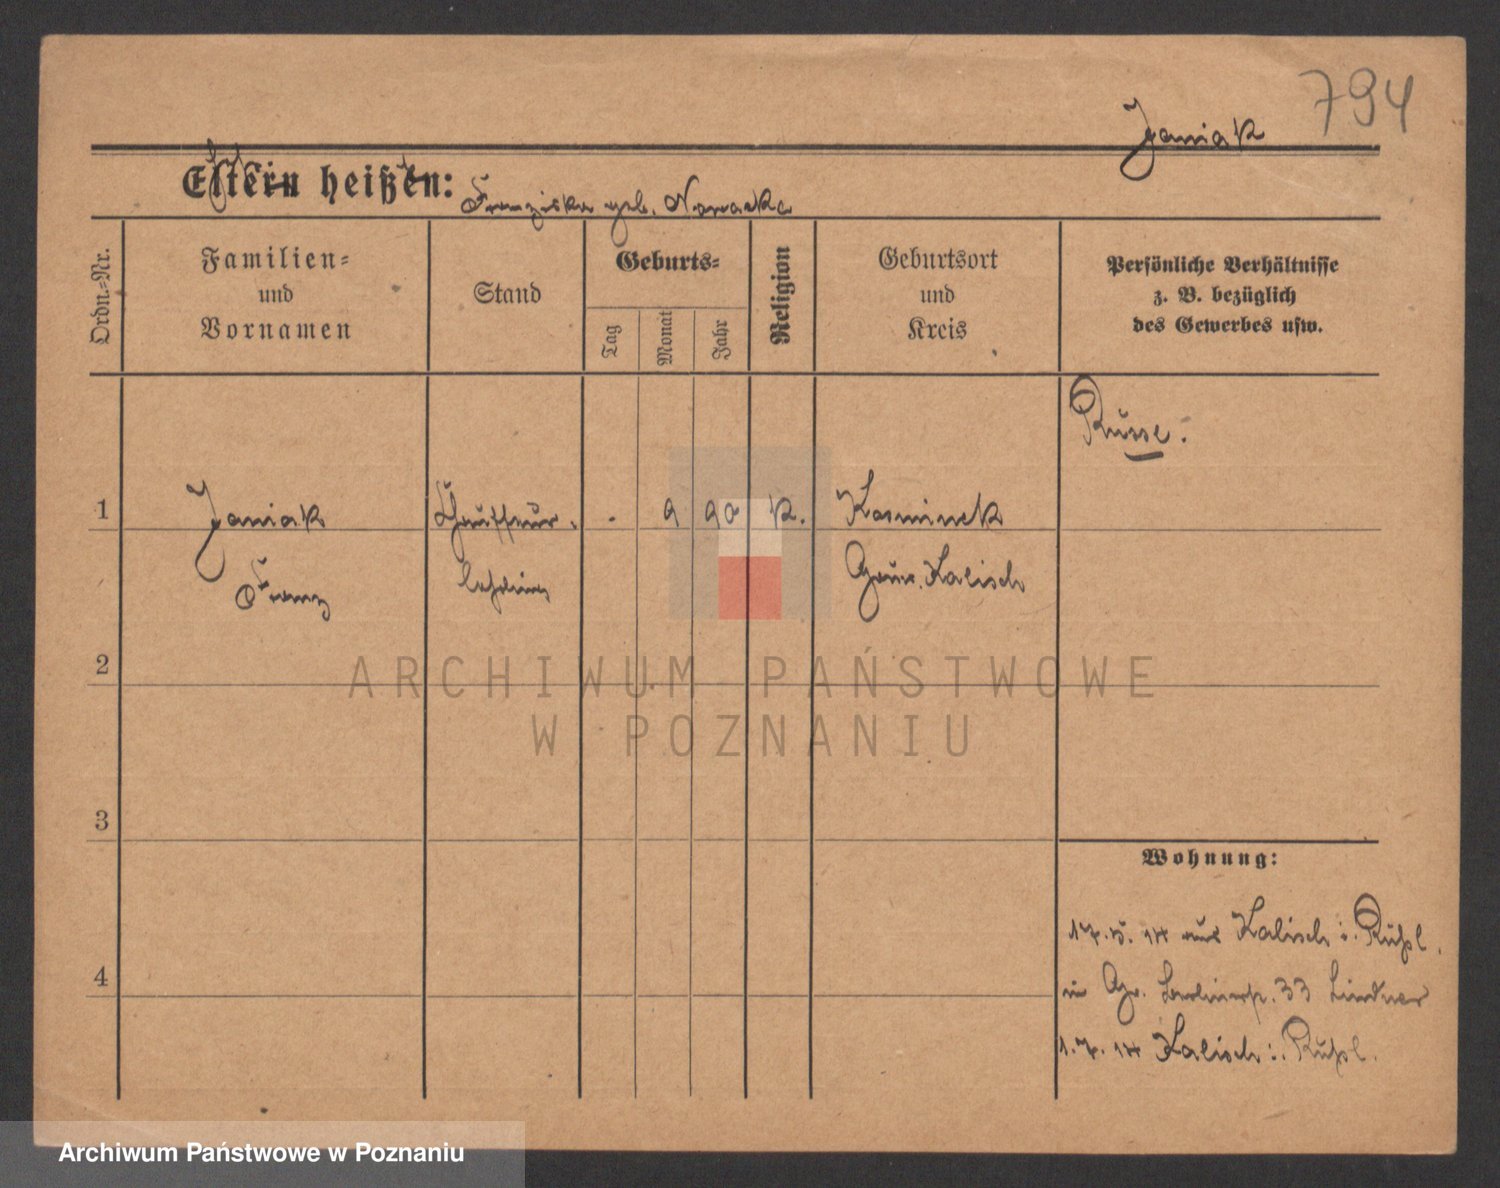 794
Janiak
Eltern heißen: Franziska geb. Nowacka
Ordn.-Nr.
Familien-
und
Vornamen
Stand
Geburts-
Tag
Monat
Jahr
Religion
Geburtsort
und
Kreis
Persönliche Verhältnisse
z. B. bezüglich
des Gewerbes usw.
Russe.
1 Janiak Chauffeur. . 9 90 K. Kosminek
Franz lehrling Gouv. Kalisch
2
3
4
Wohnung:
17.5.14 aus Kalisch i. Rußl.
in Gr. Berlinerstr. 33 Lindner
1.7.14 Kalisch i. Rußl.
ARCHIWUM PAŃSTWOWE
W POZNANIU
Archiwum Państwowe w Poznaniu